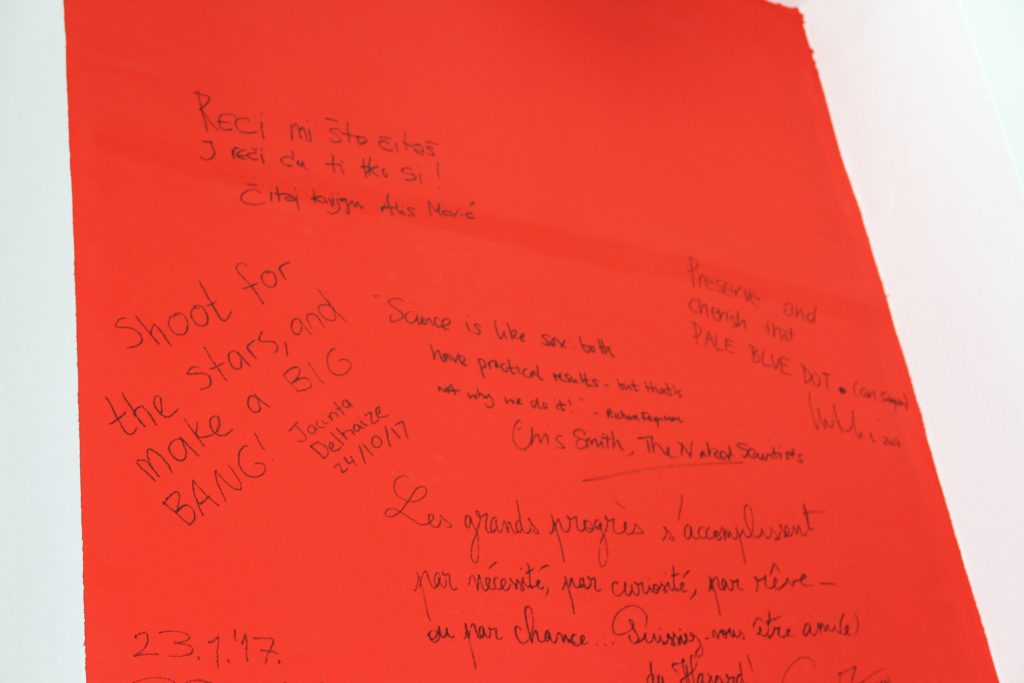 Reci mi što čitaš
I reči ću ti tko si!
Čitaj knjigu Alis Marić
Shoot for
the stars, and
make a BIG
BANG!
Jacinta
Delhaize
24/10/17
"Science is like sex: both
have practical results - but that's
not why we do it!" - Richard Feynman
Chris Smith, The Naked Scientists
Preserve and
cherish that
PALE BLUE DOT. (Carl Sagan)
2017
Les grands progrès s'accomplissent
par nécessité, par curiosité, par rêve -
ou par chance... Puissiez-vous être ami(e)
du Hasard!
23.1.'17.